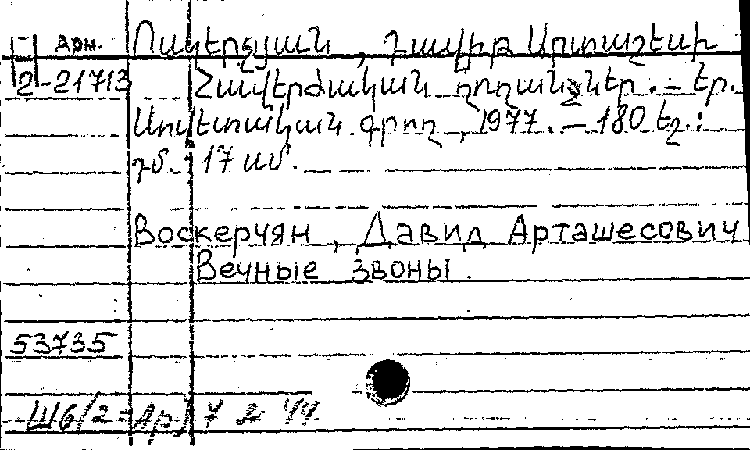 арм. Ոսկերչյան, Դավիթ Արտաշեսի
2-21713 Հավերժական ղողանջներ. – Եր.
Սովետական գրող, 1977. – 180 էջ.:
դմ. 17 սմ.
Воскерчян, Давид Арташесович
Вечные звоны.
53735
Ш6/2=Ар) 7